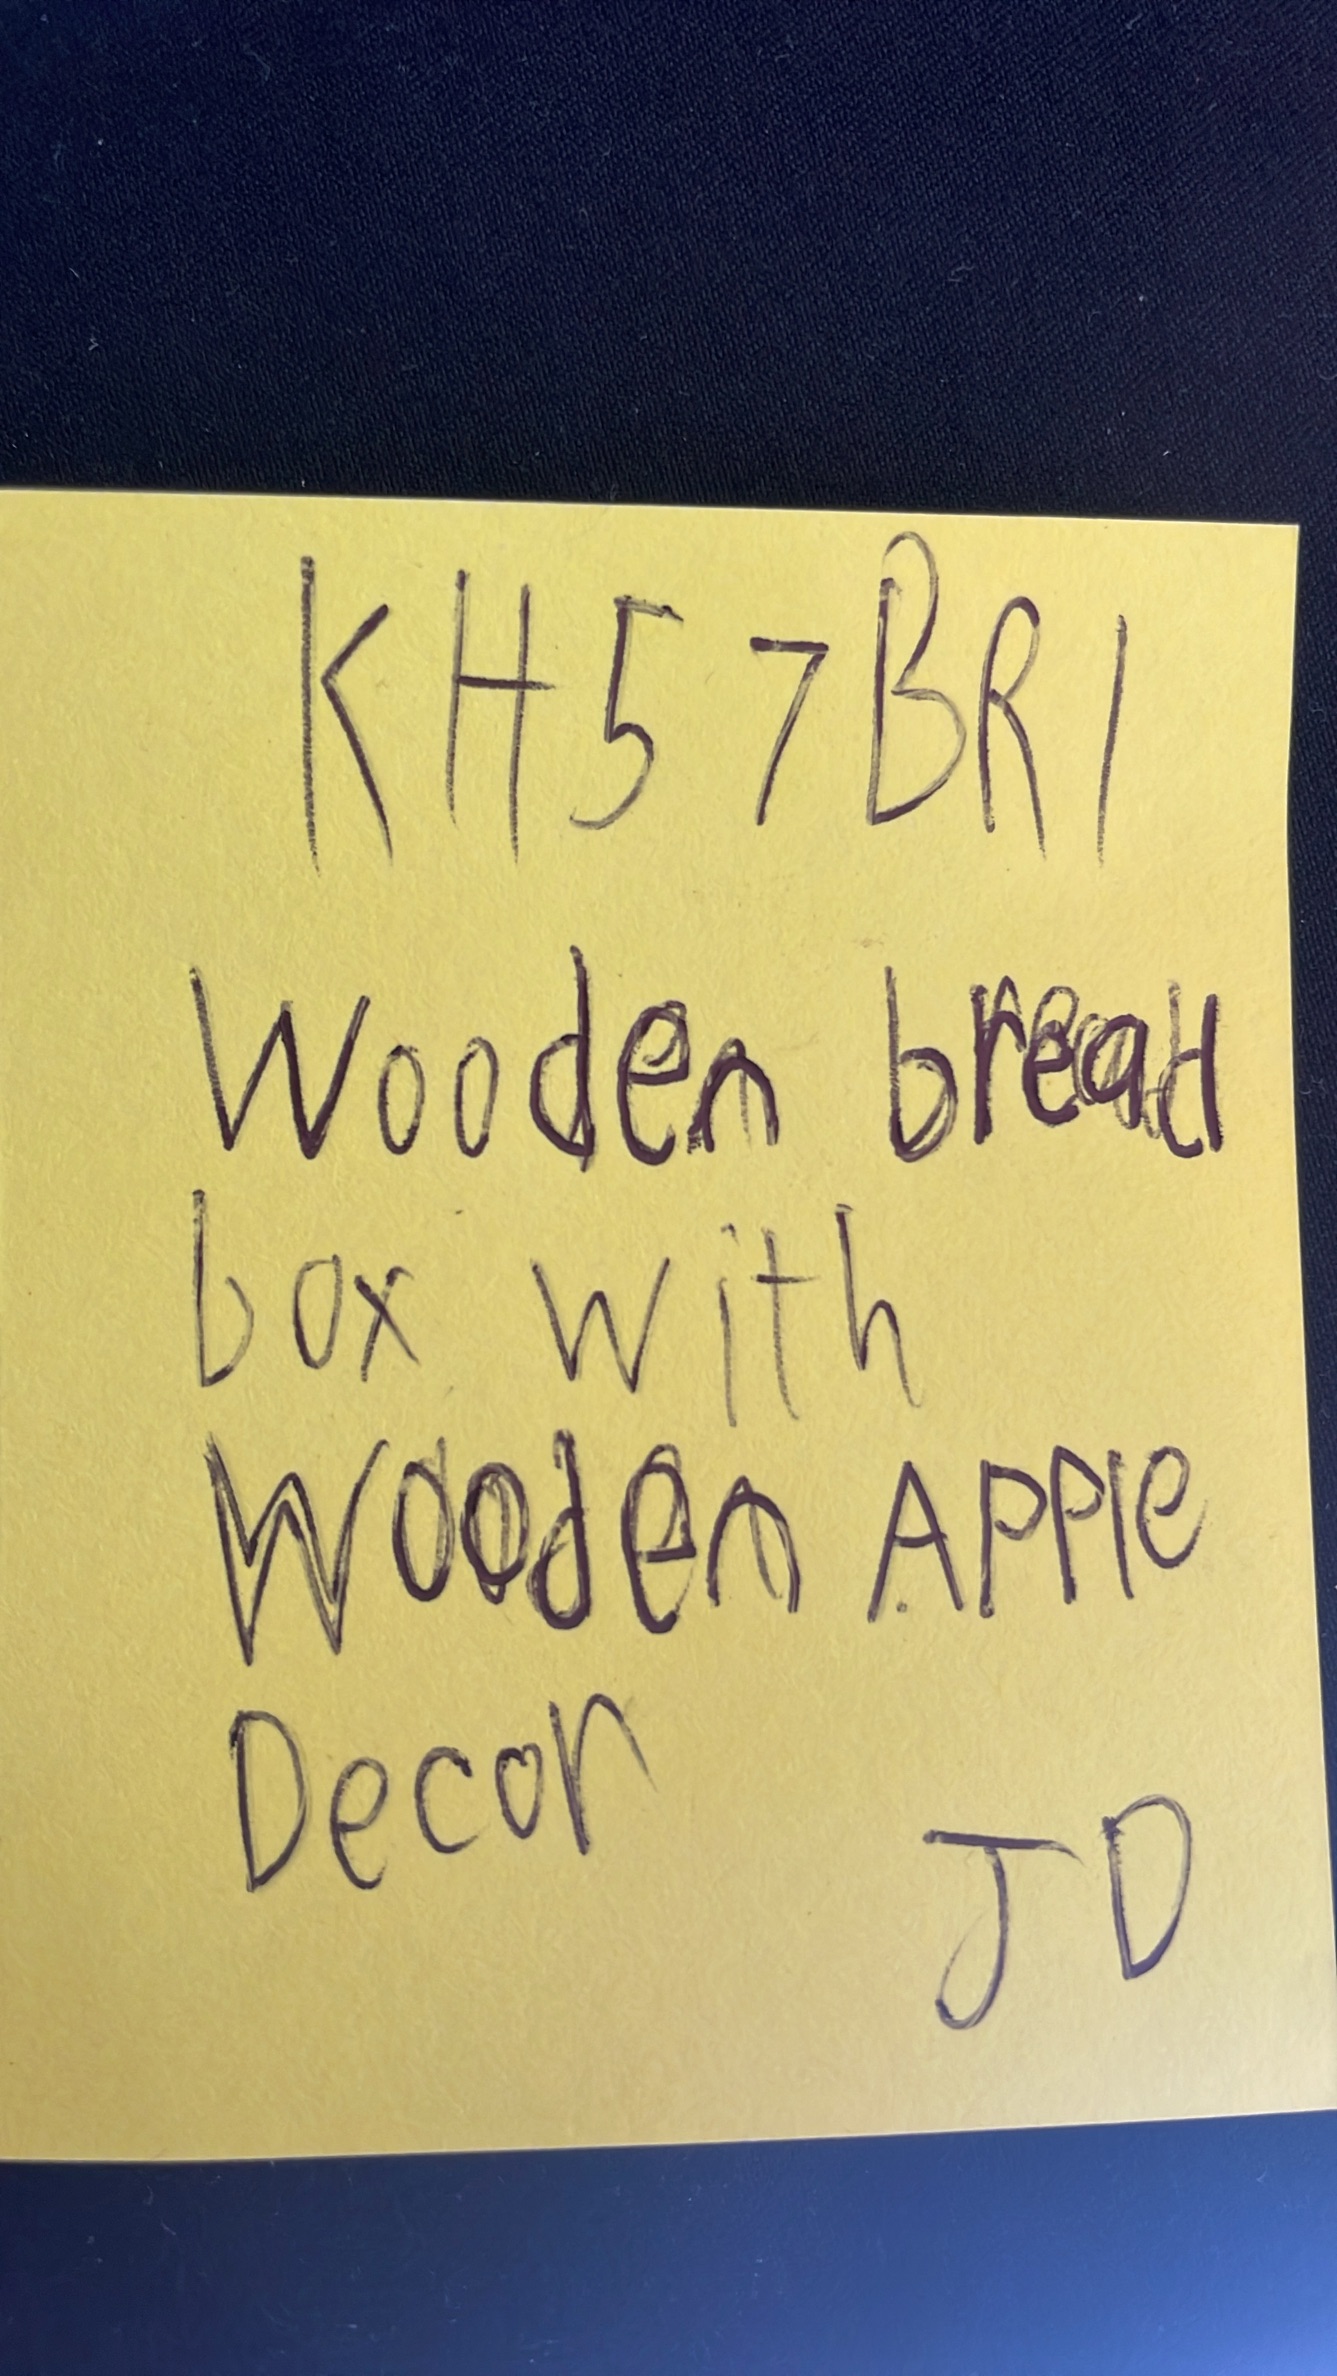 KH57BR1
Wooden bread
box with
Wooden APPle
Decor
JD